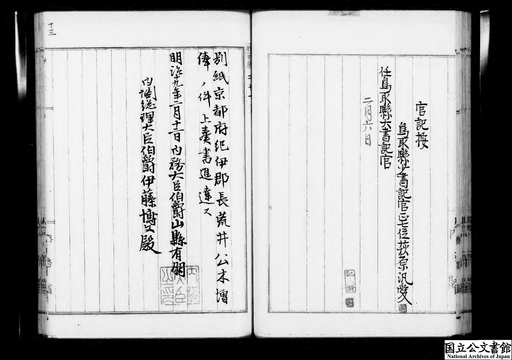 官記按
鳥取縣少書記官正七位
任鳥取縣大書記官
二月六日
別紙京都府紀伊郡長荒井公木
件上奏書進達ス
明治十九年二月十三日内務大臣伯爵山縣有朋
内閣総理大臣伯爵伊藤博文殿
十三
国立公文書館
National Archives of Japan